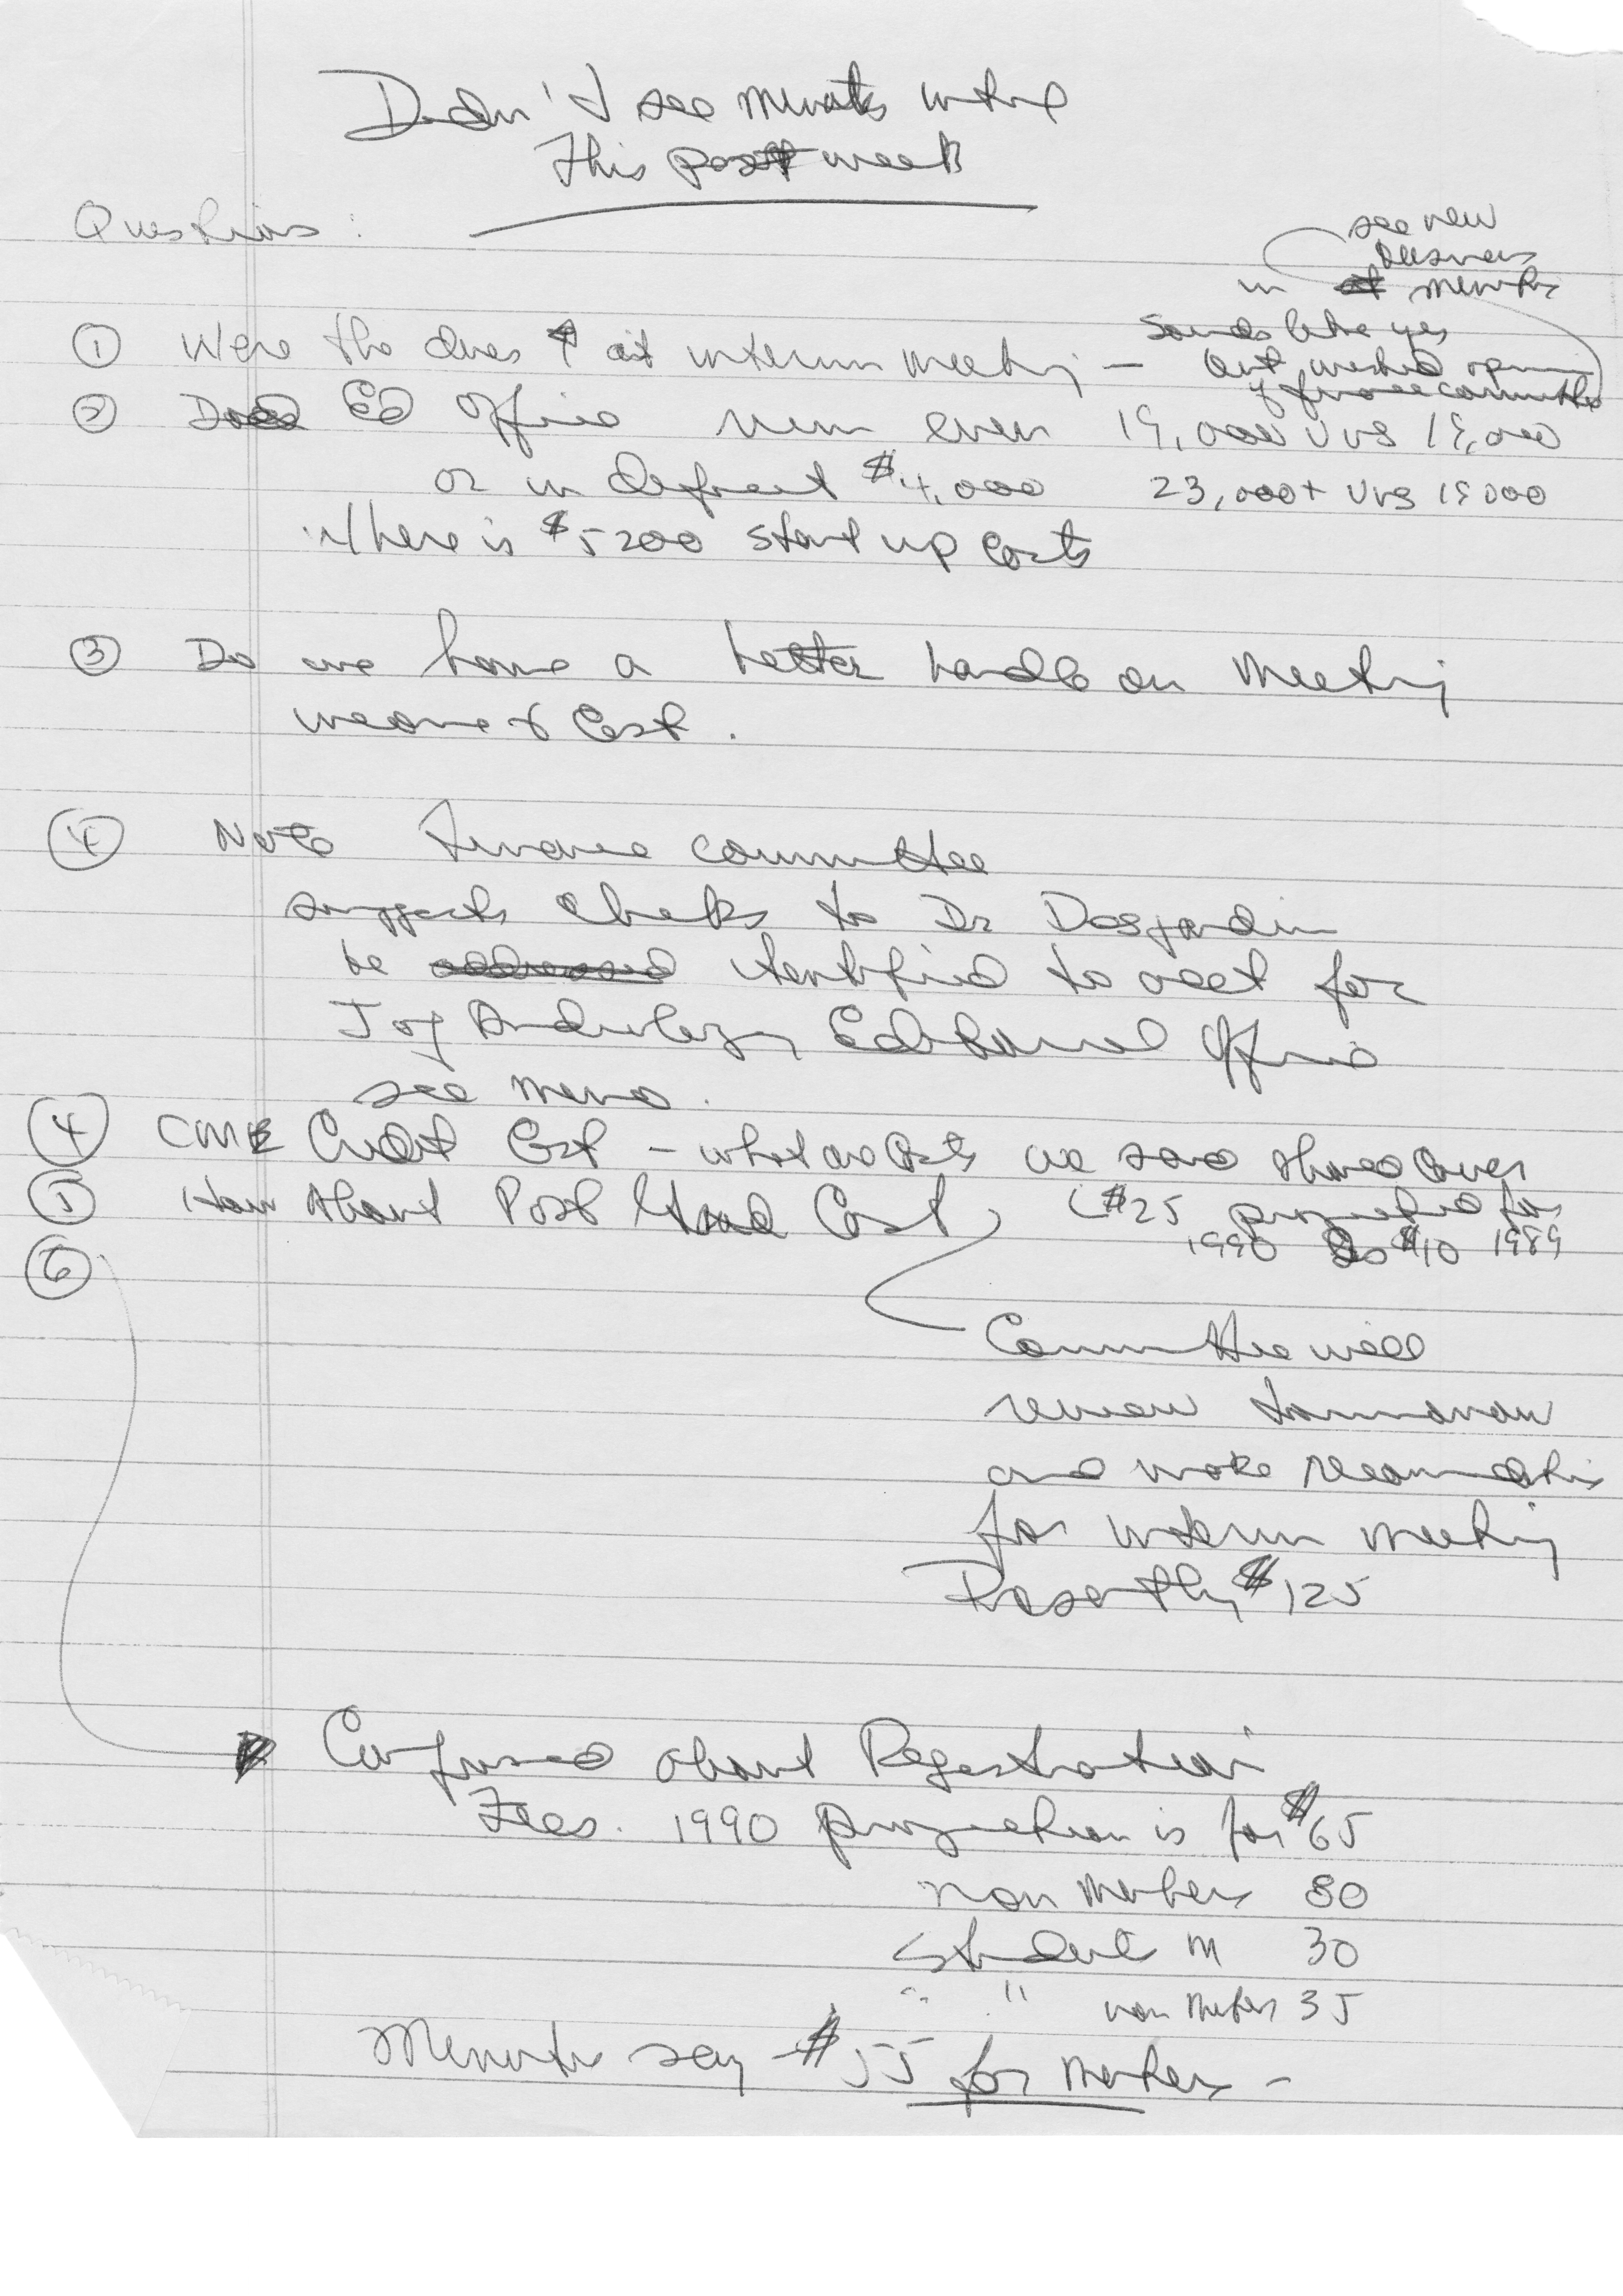 Didn't see minutes until
this past week
Questions:
see new
business
in minutes
① Were the dues ↑ at interim meeting — sounds like yes
but wanted opinion
of finance committee
② Does Ed Office run even 19,000 vrs 19,000
or in deficit $4,000 23,000+ vrs 19000
Where is $5200 start up costs
③ Do we have a better handle on meeting
income & cost.
④ Note Finance committee
suggests checks to Dr Desjardin
be identified to acct for
Joy Editorial Office
see memo.
④ CME Credit Cost – what we said should cover
⑤ How about Post Grad Cost ($25 projected for
1990 $10 1989
⑥
Committee will
review tomorrow
and make recommendation
for interim meeting
Presently $125
Confused about Registration
Fees. 1990 projection is for $65
non members 80
Student M 30
" " non member 35
Minutes say $55 for members –